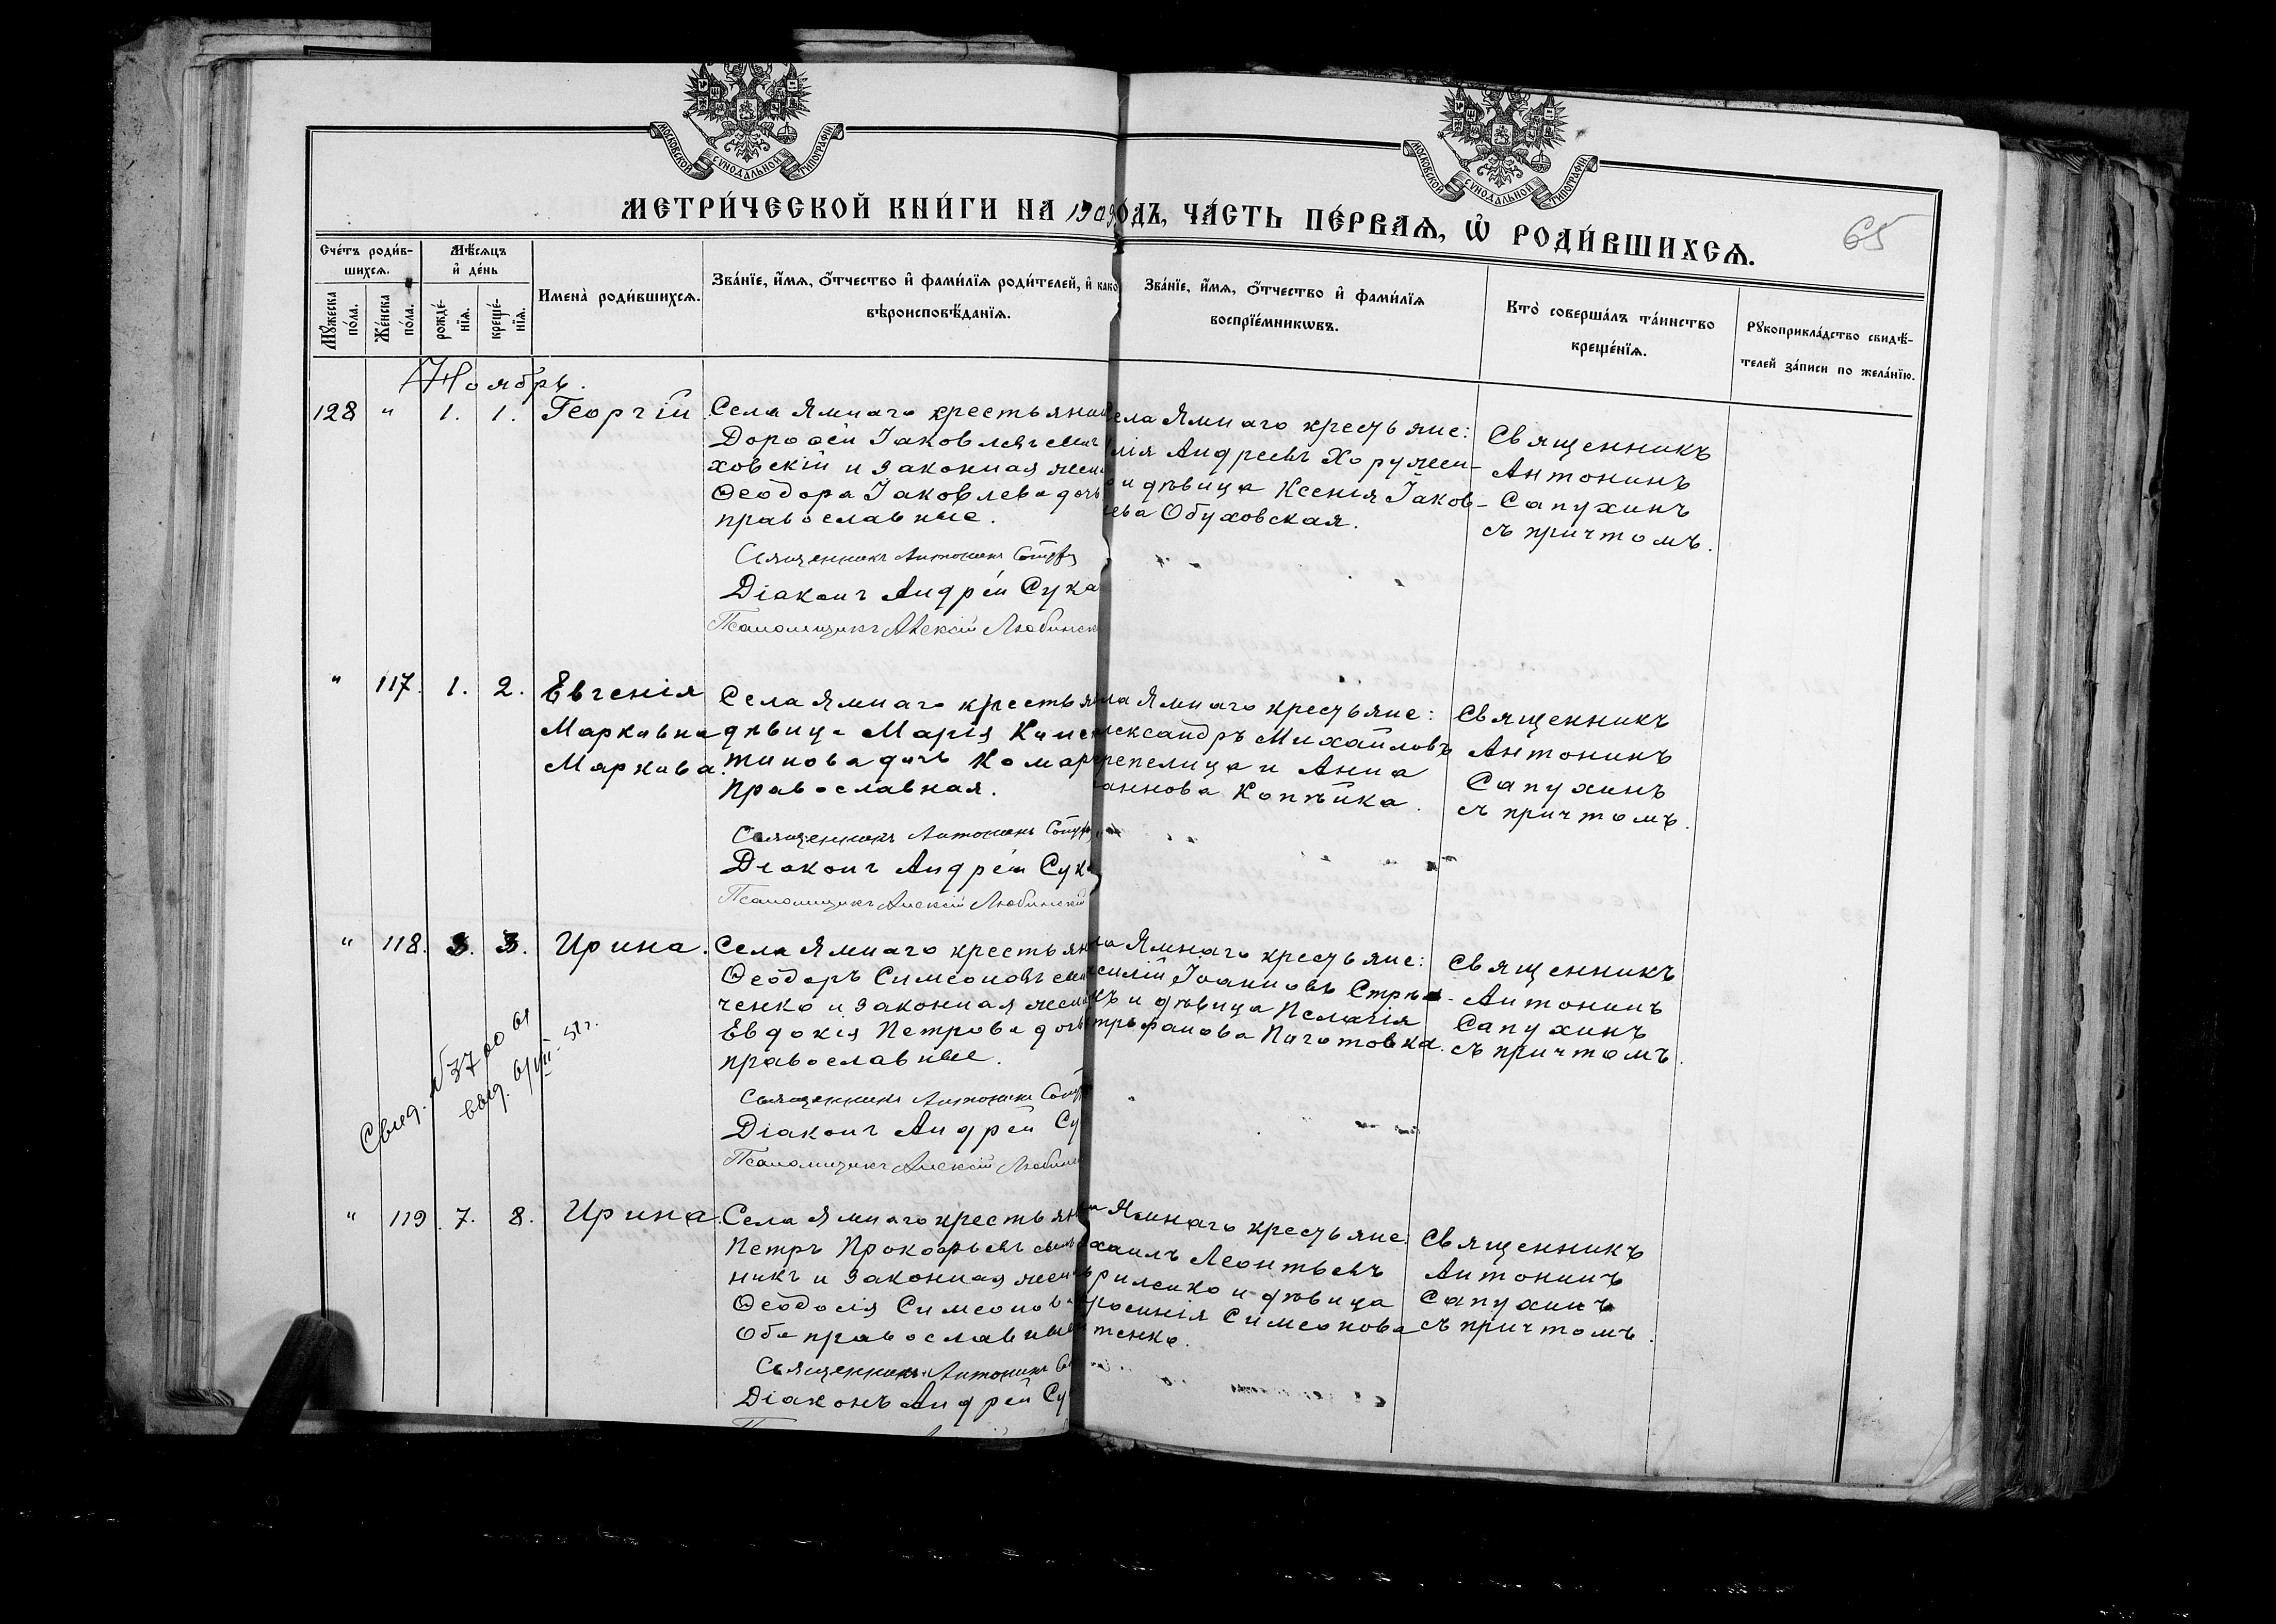 МОСКОВСКОЙ СѴНОДАЛЬНОЙ ТИПОГРАФІИ
МОСКОВСКОЙ СѴНОДАЛЬНОЙ ТИПОГРАФІИ
МЕТРИ́ЧЕСКОЙ КНИ́ГИ НА 1909 ГО́ДЪ, ЧА́СТЬ ПЕ́РВАѦ, Ѡ҆ РОДИ́ВШИХСѦ.
65
Сче́тъ роди́в-
шихсѧ.
Мѣ́сѧцъ
и҆ де́нь
Мꙋ́жеска по́ла.
Же́нска по́ла.
рожде́-
нїѧ.
креще́-
нїѧ.
Имена̀ роди́вшихсѧ.
Зва́нїе, и҆́мѧ, ѻ҆́тчество и҆ фами́лїѧ роди́телей, и҆ како
вѣроисповѣ́данїѧ.
Зва́нїе, и҆́мѧ, ѻ҆́тчество и҆ фами́лїѧ
воспрїе́мникѡвъ.
Кто̀ соверша́лъ та́инство
креще́нїѧ.
Рꙋкоприкла́дство свидѣ́-
телей за́писи по жела́нїю.
Ноябрь.
128 " 1. 1. Георгій
Села Ямнаго крестьянин
Дороѳей Іаковлевъ
ховскій и законная жен
Ѳеодора Іаковлева дочь
православные.
Священникъ Антонинъ
Діаконъ Андрей Сука
Псаломщикъ Алексій Любинск
ела Ямнаго крестьяне:
лія Андреевъ Хоружен-
о и дѣвица Ксенія Іаков-
лева Обуховская.
Священникъ
Антонинъ
Сапухинъ
съ причтомъ.
" 117. 1. 2. Евгенія
Марковна
Маркова.
Села Ямнаго крестья
дѣвица Марія
тинова дочь Комар
православная.
Священникъ Антонинъ
Діаконъ Андрей Сука
Псаломщикъ Алексій Любинскій
ла Ямнаго крестьяне:
лександръ Михайловъ
репелица и Анна
аннова Копѣйка.
Священникъ
Антонинъ
Сапухинъ
съ причтомъ.
" 118. 3. 3. Ирина.
Свид. №
выд.
Села Ямнаго крестьян
Ѳеодоръ Симеоновъ
ченко и законная жена
Евдокія Петрова дочь
православные.
Священникъ Антонинъ
Діаконъ Андрей Су
Псаломщикъ Алексій Любинс
ла Ямнаго крестьяне:
силій Іоанновъ
къ и дѣвица Пелагія
трофанова Паготовка.
Священникъ
Антонинъ
Сапухинъ
съ причтомъ.
" 119. 7. 8. Ирина.
Села Ямнаго крестьян
Петръ Прокофьевъ
никъ и законная жена
Ѳеодосія Симеонов
Оба православные
Священникъ Антонинъ
Діаконъ Андрей Су
Ямнаго крестьяне:
хаилъ Леонтьевъ
риленко и дѣвица
росинія Симеонова
тенко.
Священникъ
Антонинъ
Сапухинъ
съ причтомъ.